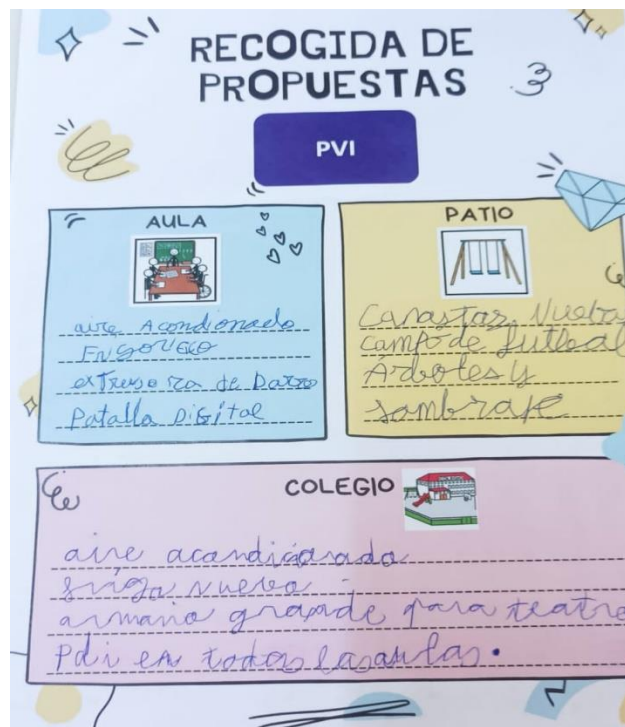 RECOGIDA DE
PROPUESTAS
PVI
AULA
aire Acondionado
extrusora de Barro
Patalla Digital
PATIO
Canastas Nueba
campo de futboal
Árboles y
sombraje
COLEGIO
aire acondicionado
frigo nuevo
armario grande para teatre
Pdi en todas las aulas.